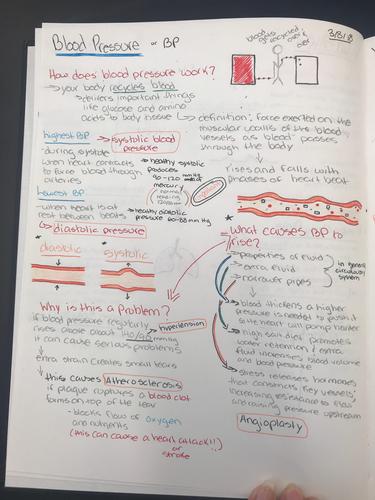 Blood Pressure or BP
3/3/18
blood gets recycled over & over
How does blood pressure work?
→ your body recycles blood
→ delivers important things
like glucose and amino
acids to body tissue
↳ definition: force exerted on the
muscular walls of the blood
vessels as blood passes
through the body
→ rises and falls with
phases of heart beat
highest BP → systolic blood
pressure
- during systole
when heart contracts
to force blood through
arteries
→ healthy systolic
produces
90-120 mm of
mercury
lowest BP
- when heart is at
rest between beats
→ healthy diastolic
pressure 60-80 mm Hg
↳ diastolic pressure
diastolic
systolic
* What causes BP to
rise?
→ properties of fluid
→ extra fluid
→ narrower pipes
in general
circulatory
system
→ blood thickens a higher
pressure is needed to push it
so the heart will pump harder
→ high salt diet promotes
water retention & extra
fluid increases blood volume
and blood pressure
→ stress releases hormones
that constricts key vessels,
increasing resistance to flow
and raising pressure upstream
Angioplasty
Why is this a problem?
if blood pressure regularly → hypertension
rises above about 140/90 mmHg
it can cause serious problems
extra strain creates small tears
* this causes Atherosclerosis
if plaque ruptures a blood clot
forms on top of the tear
- blocks flow of oxygen
and nutrients
(this can cause a heart attack!!)
or
stroke